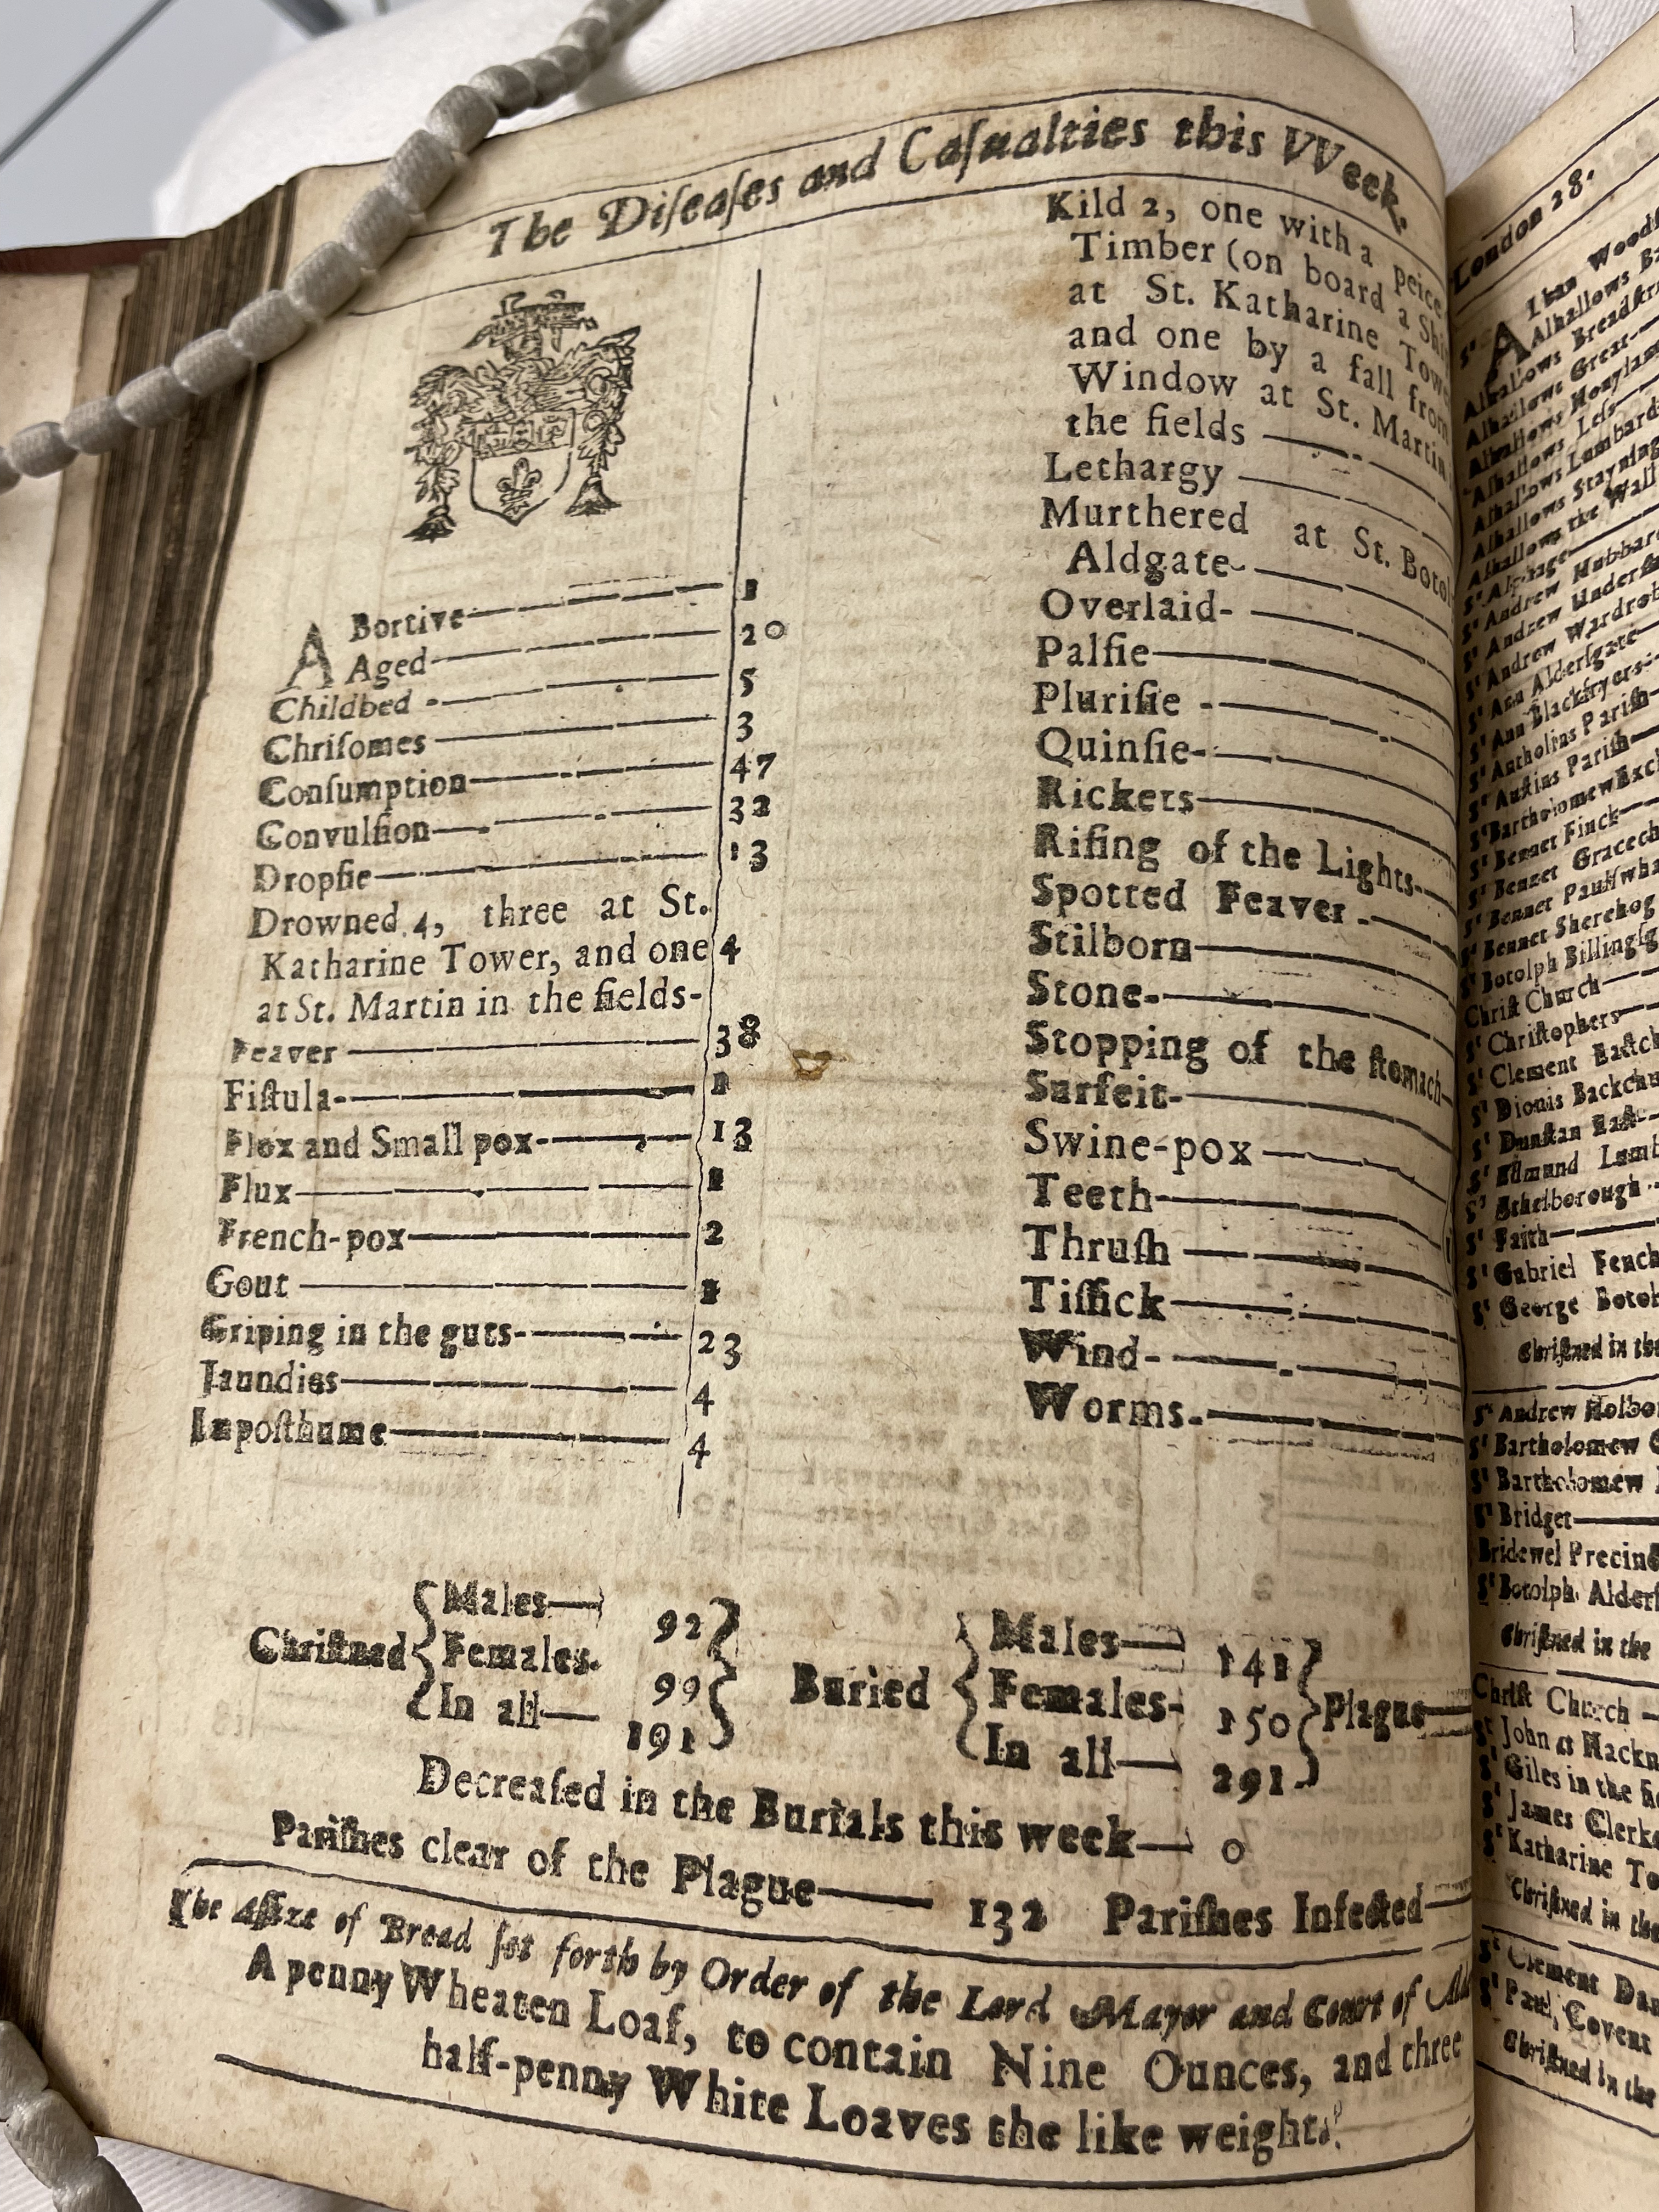 The Diſeaſes and Caſualties this VVeek.
ABortive 1
Aged 20
Childbed 5
Chriſomes 3
Conſumption 47
Convulſion 32
Dropſie 13
Drowned 4, three at St.
Katharine Tower, and one 4
at St. Martin in the fields
Feaver 38
Fiſtula 1
Flox and Small pox 13
Flux 1
French-pox 2
Gout 1
Griping in the guts 23
Jaundies 4
Impoſthume 4
Kild 2, one with a peice
Timber (on board a
at St. Katharine
and one by a fall from
Window at St. Martin
the fields
Lethargy
Murthered at St.
Aldgate
Overlaid
Palſie
Pluriſie
Quinſie
Rickets
Riſing of the Lights
Spotted Feaver
Stilborn
Stone
Stopping of the ſtomach
Surfeit
Swine-pox
Teeth
Thruſh
Tiſſick
Wind
Worms
Chriſtned
Males 92
Females 99
In all 191
Buried
Males 141
Females 150
In all 291
Plague
Decreaſed in the Burials this week 0
Pariſhes clear of the Plague 132 Pariſhes Infected
The Aſſize of Bread ſet forth by Order of the Lord Mayor and Court of
A penny Wheaten Loaf, to contain Nine Ounces, and three
half-penny White Loaves the like weight.
London 28.
Alhallows
Alhallows Breadſtr
Alhallows Great
Alhallows Honylan
Alhallows Leſs
Alhallows Lumbard
Alhallows Stayning
Alhallows the Wall
St Alphage
St Andrew Hubbar
St Andrew Underſh
St Andrew Wardrob
St Ann Alderſgate
St Ann Blackfryers
St Antholins Pariſh
St Auſtins Pariſh
St Bartholomew Exch
St Bennet Finck
St Bennet Gracech
St Bennet Paulſwha
St Bennet Sherehog
St Botolph Billingſg
Chriſt Church
St Chriſtophers
St Clement Eaſtch
St Dionis Backchu
St Dunſtan Eaſt
St Edmund Lumb
St Ethelborough
St Faith
St Gabriel Fench
St George Botol
Chriſtned in the
St Andrew Holbo
St Bartholomew
St Bartholomew
St Bridget
Bridewel Precin
St Botolph Alderſ
Chriſtned in the
Chriſt Church
St John at Hackn
St Giles in the
St James Clerk
St Katharine To
Chriſtned in the
St Clement Dan
St Paul, Covent
Chriſtned in the